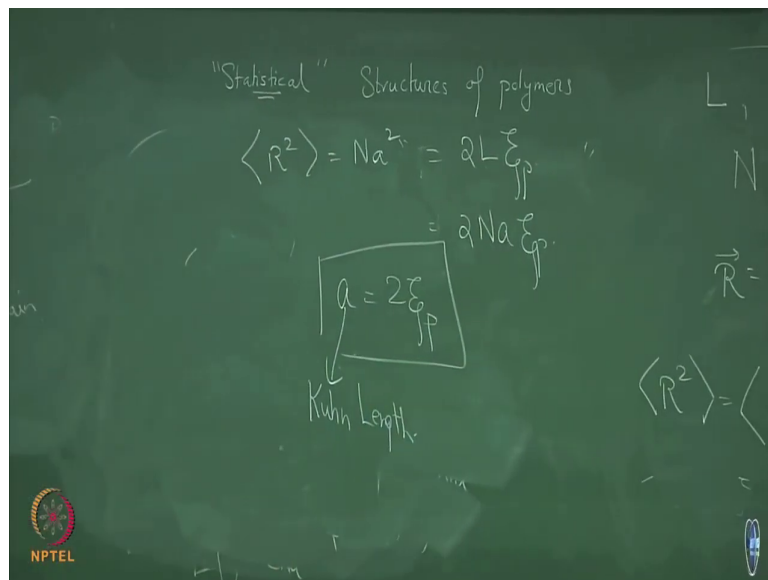 "Statistical" Structures of polymers
⟨R²⟩ = Na² = 2Lξₚ
= 2Naξₚ.
a = 2ξₚ
Kuhn Length.
L,
N
R⃗ =
⟨R²⟩ = ⟨
NPTEL